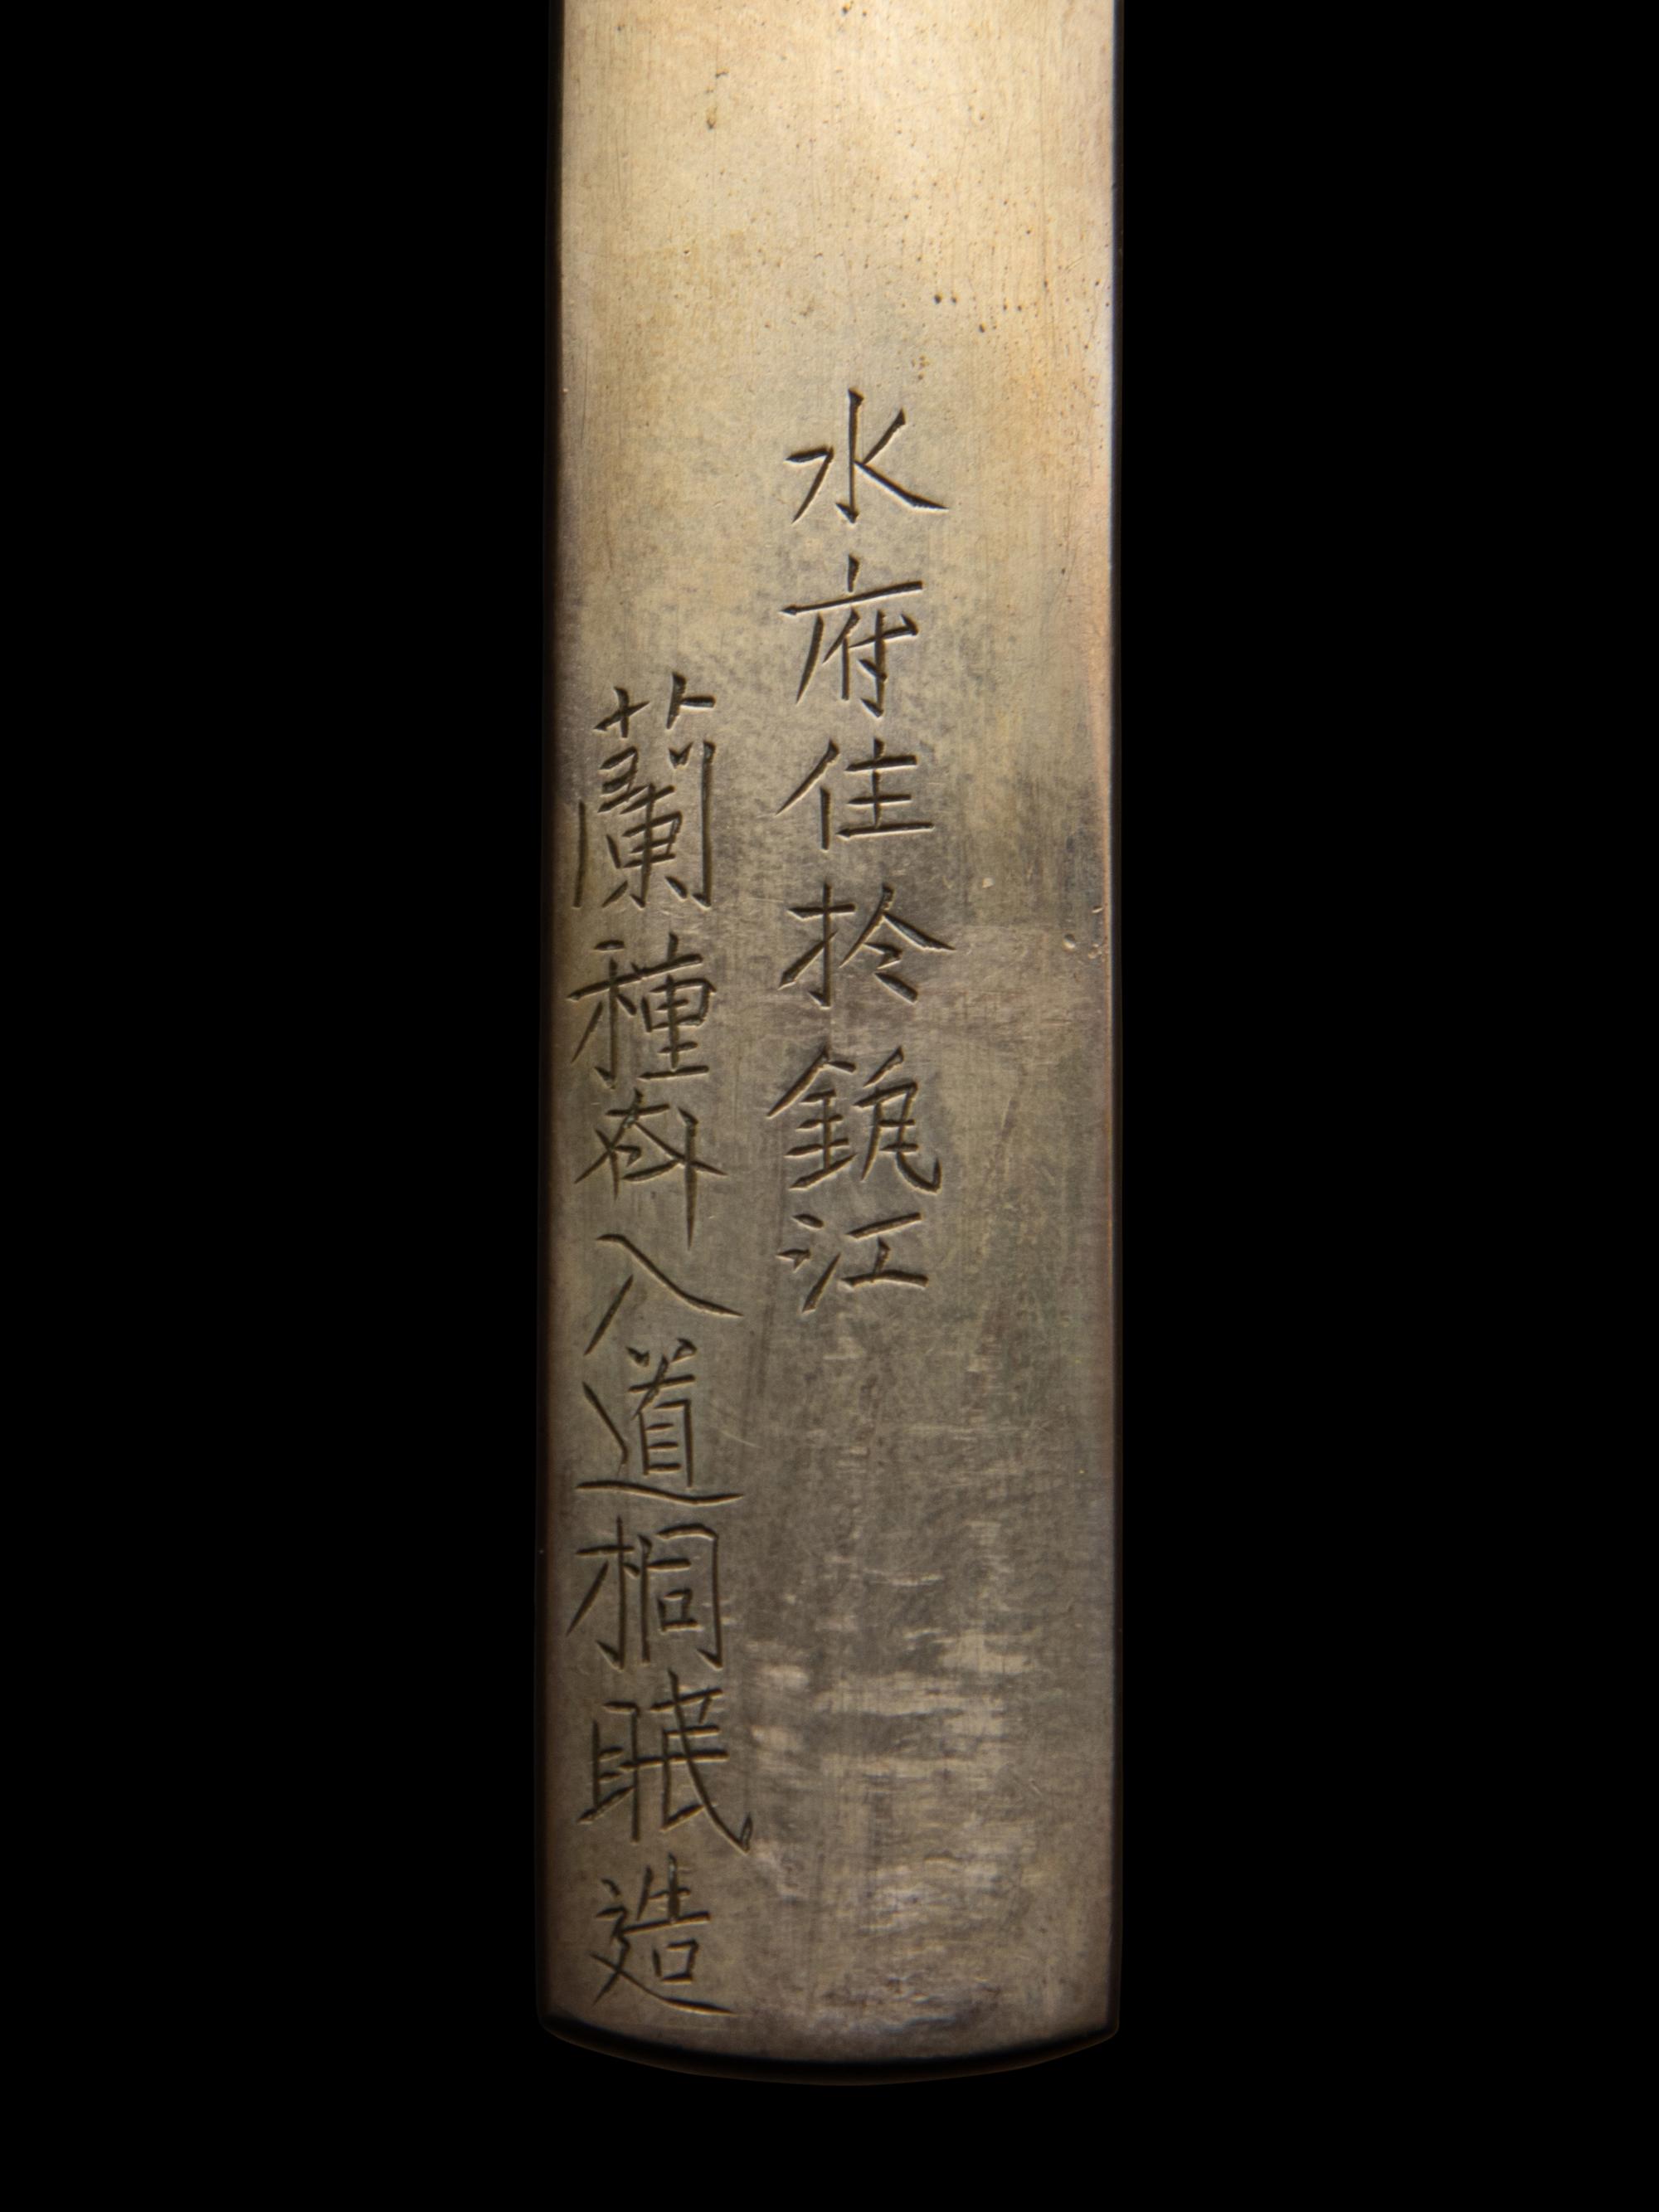 水府住扵江
蘭種斎入道桐眠造